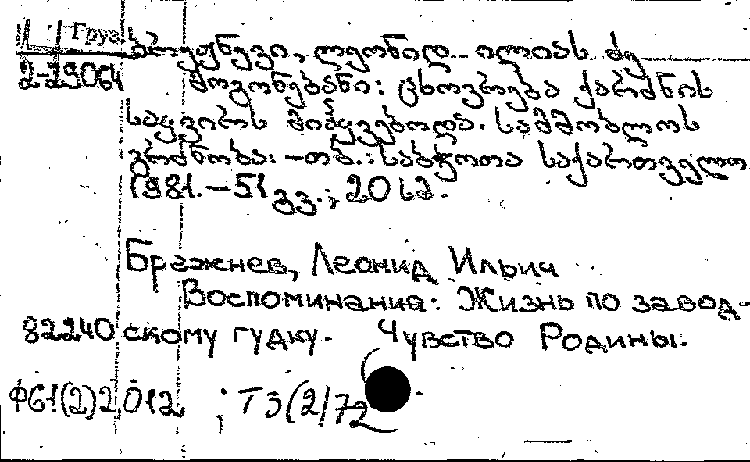 Груз
ბრეჟნევი, ლეონიდ ილიას ძე
2-29064 მოგონებანი: ცხოვრება ქარხნის
საყვირს მიჰყვებოდა. სამშობლოს
გრძნობა: -თბ.: საბჭოთა საქართველო
1981.-51 გვ.; 20 სმ.
Брежнев, Леонид Ильич
Воспоминания: Жизнь по завод-
82240 скому гудку. Чувство Родины.
Ф61(2)2,012 ; Т3(2)72